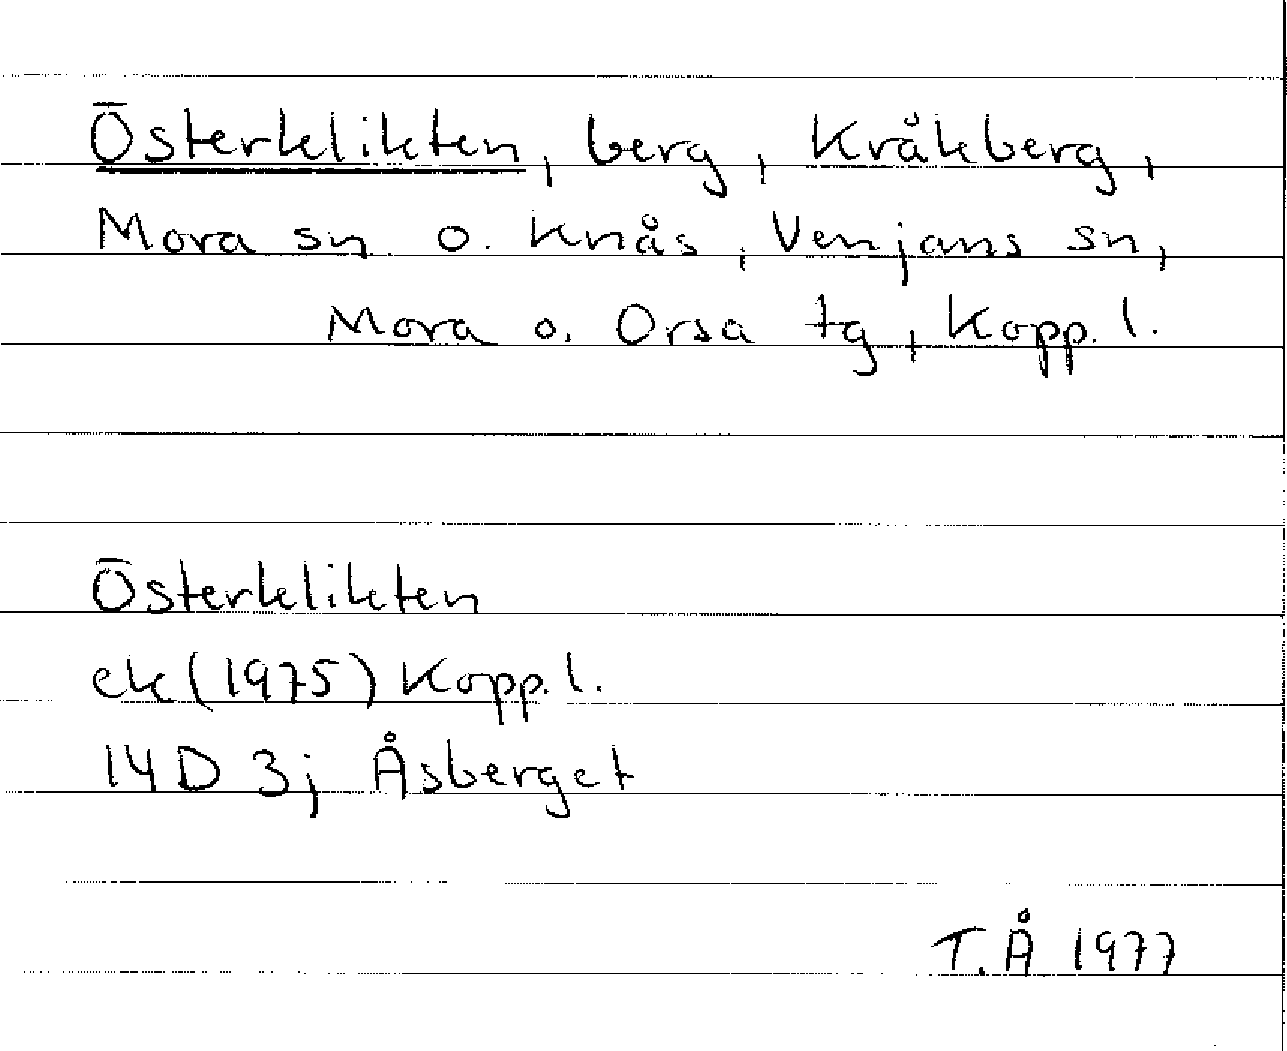 Österklikten, berg, Kråkberg,
Mora sn o. Knås, Venjans sn,
Mora o. Orsa tg, Kopp. l.
Österklikten
ek (1975) Kopp. l.
14D 3j Åsberget
T.Å 1977